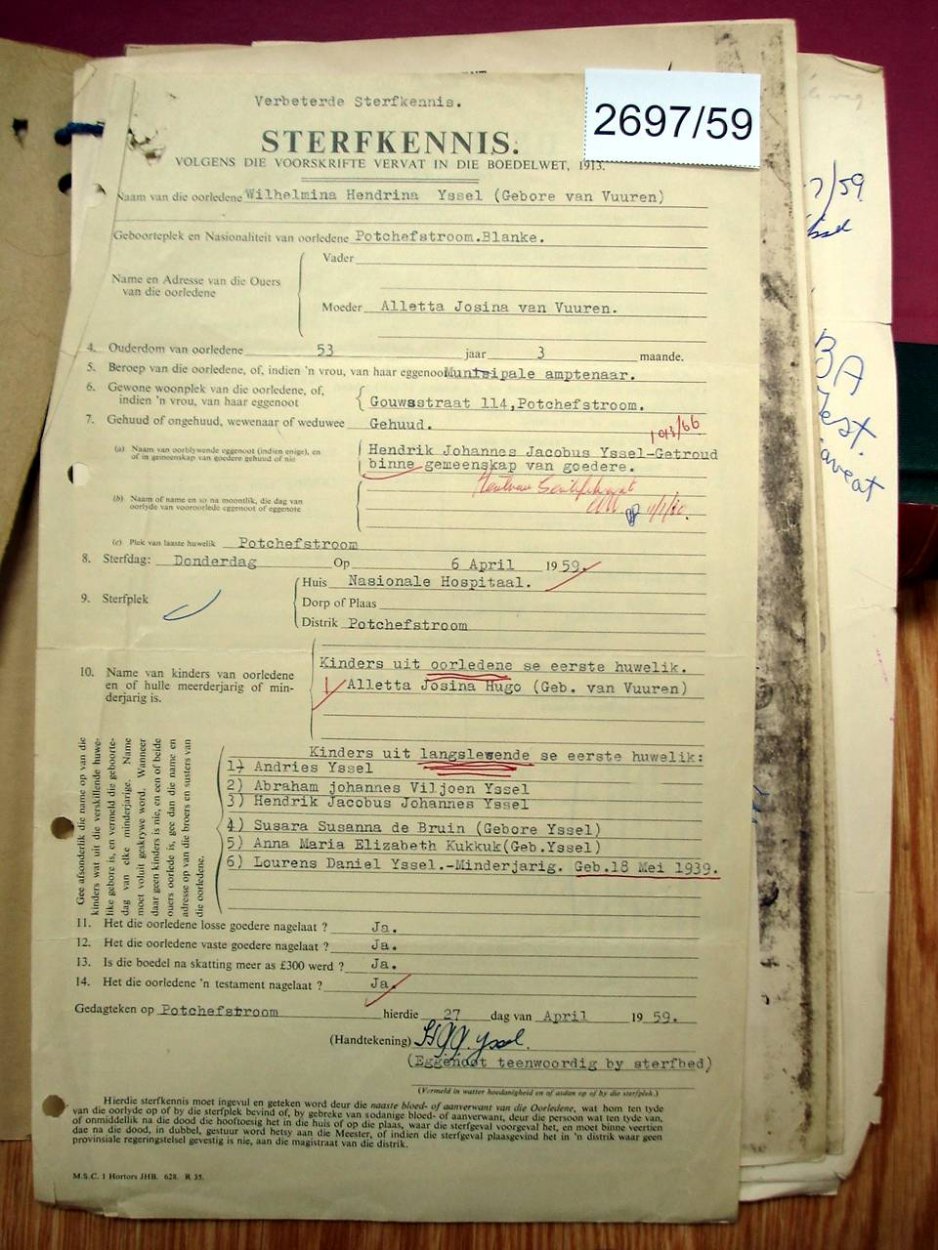 2697/59
Verbeterde Sterfkennis.
STERFKENNIS.
VOLGENS DIE VOORSKRIFTE VERVAT IN DIE BOEDELWET, 1913.
Naam van die oorledene Wilhelmina Hendrina Yssel (Gebore van Vuuren)
Geboorteplek en Nasionaliteit van oorledene Potchefstroom.Blanke.
Vader
Name en Adresse van die Ouers
van die oorledene
Moeder Alletta Josina van Vuuren.
4. Ouderdom van oorledene 53 jaar 3 maande.
5. Beroep van die oorledene, of, indien 'n vrou, van haar eggenoot Munisipale amptenaar.
6. Gewone woonplek van die oorledene, of,
indien 'n vrou, van haar eggenoot Gouwsstraat 114,Potchefstroom.
7. Gehuud of ongehuud, wewenaar of weduwee Gehuud.
(a) Naam van oorblywende eggenoot (indien enige), en
of in gemeenskap van goedere gehuud of nie
Hendrik Johannes Jacobus Yssel-Getroud
binne gemeenskap van goedere.
(b) Naam of name en so na moontlik, die dag van
oorlyde van vooroorlede eggenoot of eggenote
(c) Plek van laaste huwelik Potchefstroom
8. Sterfdag: Donderdag Op 6 April 1959.
9. Sterfplek
Huis Nasionale Hospitaal.
Dorp of Plaas
Distrik Potchefstroom
10. Name van kinders van oorledene
en of hulle meerderjarig of min-
derjarig is.
Kinders uit oorledene se eerste huwelik.
1/ Alletta Josina Hugo (Geb. van Vuuren)
Gee afsonderlik die name op van die
kinders wat uit die verskillende huwe-
like gebore is, en vermeld die geboorte-
dag van elke minderjarige. Name
moet voluit geskrywe word. Wanneer
daar geen kinders is nie, en een of beide
ouers oorlede is, gee dan die name en
adresse op van die broers en susters van
die oorledene.
Kinders uit langslewende se eerste huwelik:
1) Andries Yssel
2) Abraham johannes Viljoen Yssel
3) Hendrik Jacobus Johannes Yssel
4) Susara Susanna de Bruin (Gebore Yssel)
5) Anna Maria Elizabeth Kukkuk(Geb.Yssel)
6) Lourens Daniel Yssel.-Minderjarig. Geb.18 Mei 1939.
11. Het die oorledene losse goedere nagelaat ? Ja.
12. Het die oorledene vaste goedere nagelaat ? Ja.
13. Is die boedel na skatting meer as £300 werd ? Ja.
14. Het die oorledene 'n testament nagelaat ? Ja.
Gedagteken op Potchefstroom hierdie 27 dag van April 1959.
(Handtekening) Yssel.
(Eggenoot teenwoordig by sterfbed)
(Vermeld in watter hoedanigheid en of aldan op of by die sterfplek.)
Hierdie sterfkennis moet ingevul en geteken word deur die naaste bloed- of aanverwant van die Oorledene, wat hom ten tyde
van die oorlyde op of by die sterfplek bevind of, by gebreke van sodanige bloed- of aanverwant, deur die persoon wat ten tyde van,
of onmiddellik na die dood die hooftoesig het in die huis of op die plaas, waar die sterfgeval voorgeval het, en moet binne veertien
dae na die dood, in dubbel, gestuur word hetsy aan die Meester, of indien die sterfgeval plaasgevind het in 'n distrik waar geen
provinsiale regeringstelsel gevestig is nie, aan die magistraat van die distrik.
M.S.C. 1 Hortors JHB. 628. R 35.
7/59
BA
Test.